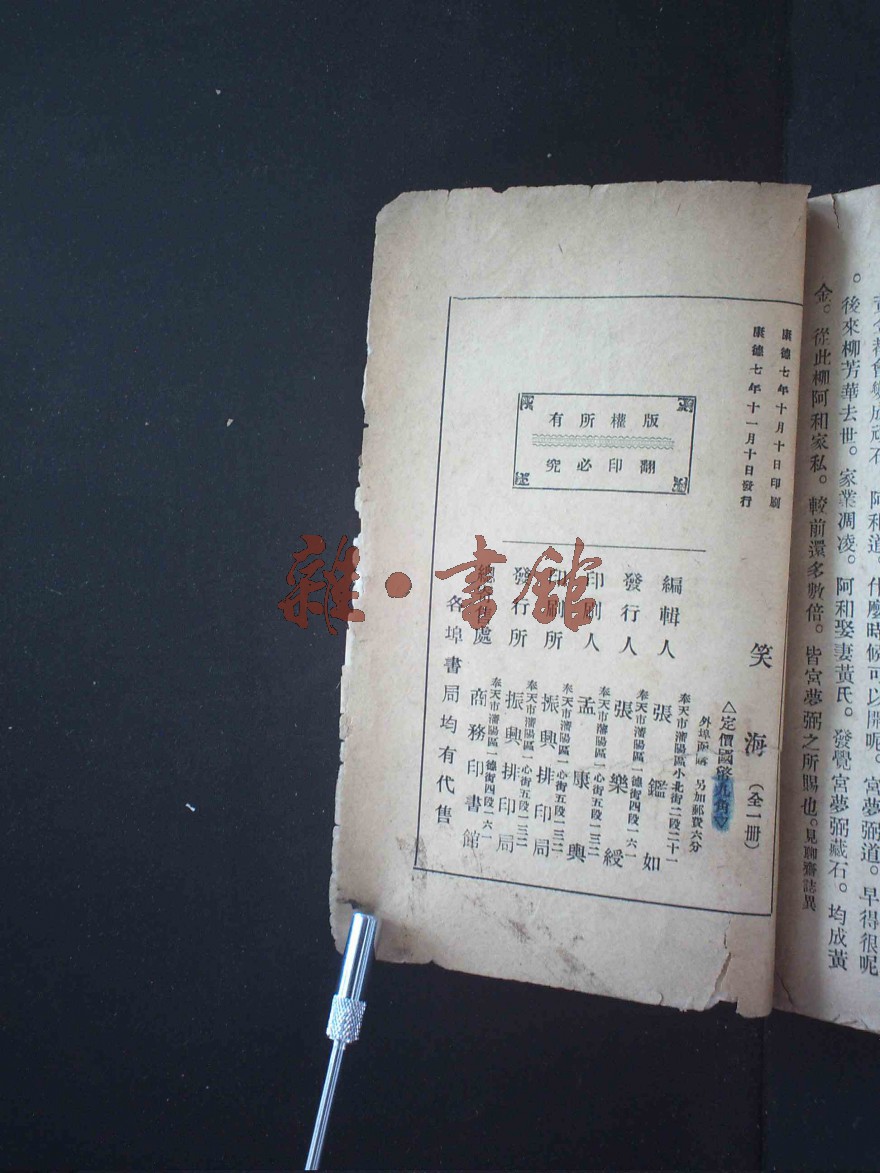 黃金都會變成頑石。阿和道。什麼時候可以開呢。宮夢弼道。早得很呢
。後來柳芳華去世。家業凋凌。阿和娶妻黃氏。發覺宮夢弼藏石。均成黃
金。從此柳阿和家私。較前還多數倍。皆宮夢弼之所賜也。見聊齋誌異
康德七年十月十日印刷
康德七年十一月十日發行
版權所有
翻印必究
笑海(全一册)
△定價國幣九角▽
外埠函購 另加郵費六分
奉天市瀋陽區小北街二段二十一
編輯人 張鑑如
奉天市瀋陽區一德街四段一六一
發行人 張樂綬
奉天市瀋陽區一心街五段一三二
印刷人 孟康興
奉天市瀋陽區一心街五段一三二
印刷所 振興排印局
奉天市瀋陽區一心街五段一三二
發行所 振興排印局
奉天市瀋陽區一德街四段一六一
總發售處 商務印書館
各埠書局均有代售
雜·書館